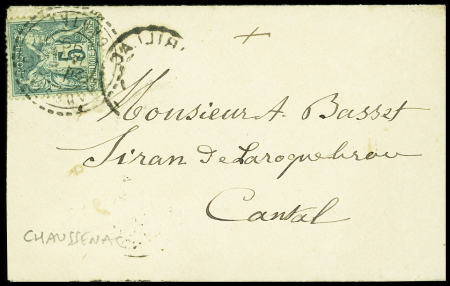 5
RILLAC
Monsieur A. Basset
Siran De Laroquebrou
Cantal
CHAUSSENAC